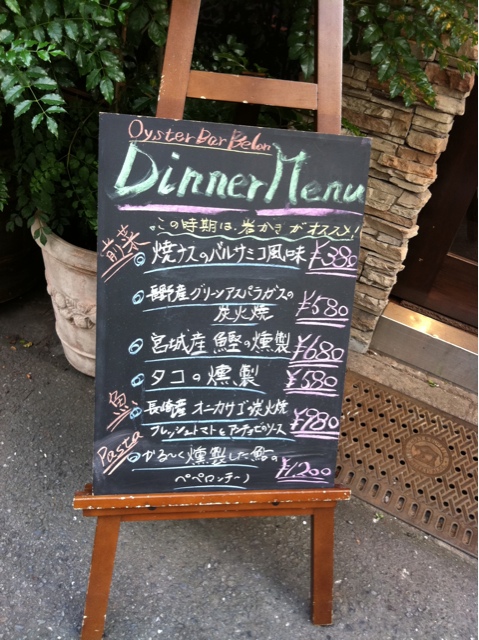 Oyster Bar Belon
Dinner Menu
この時期は、岩かきがオススメ!
前菜
焼ナスのバルサミコ風味 ¥380
長野産グリーンアスパラガスの
炭火焼 ¥580
宮城産 鰹の燻製 ¥680
タコの燻製 ¥580
魚
長崎産 オニカサゴの炭火焼 ¥980
フレッシュトマトとアンチョビのソース
Pasta
かる〜く燻製した鮪の
ペペロンチーノ ¥1,200